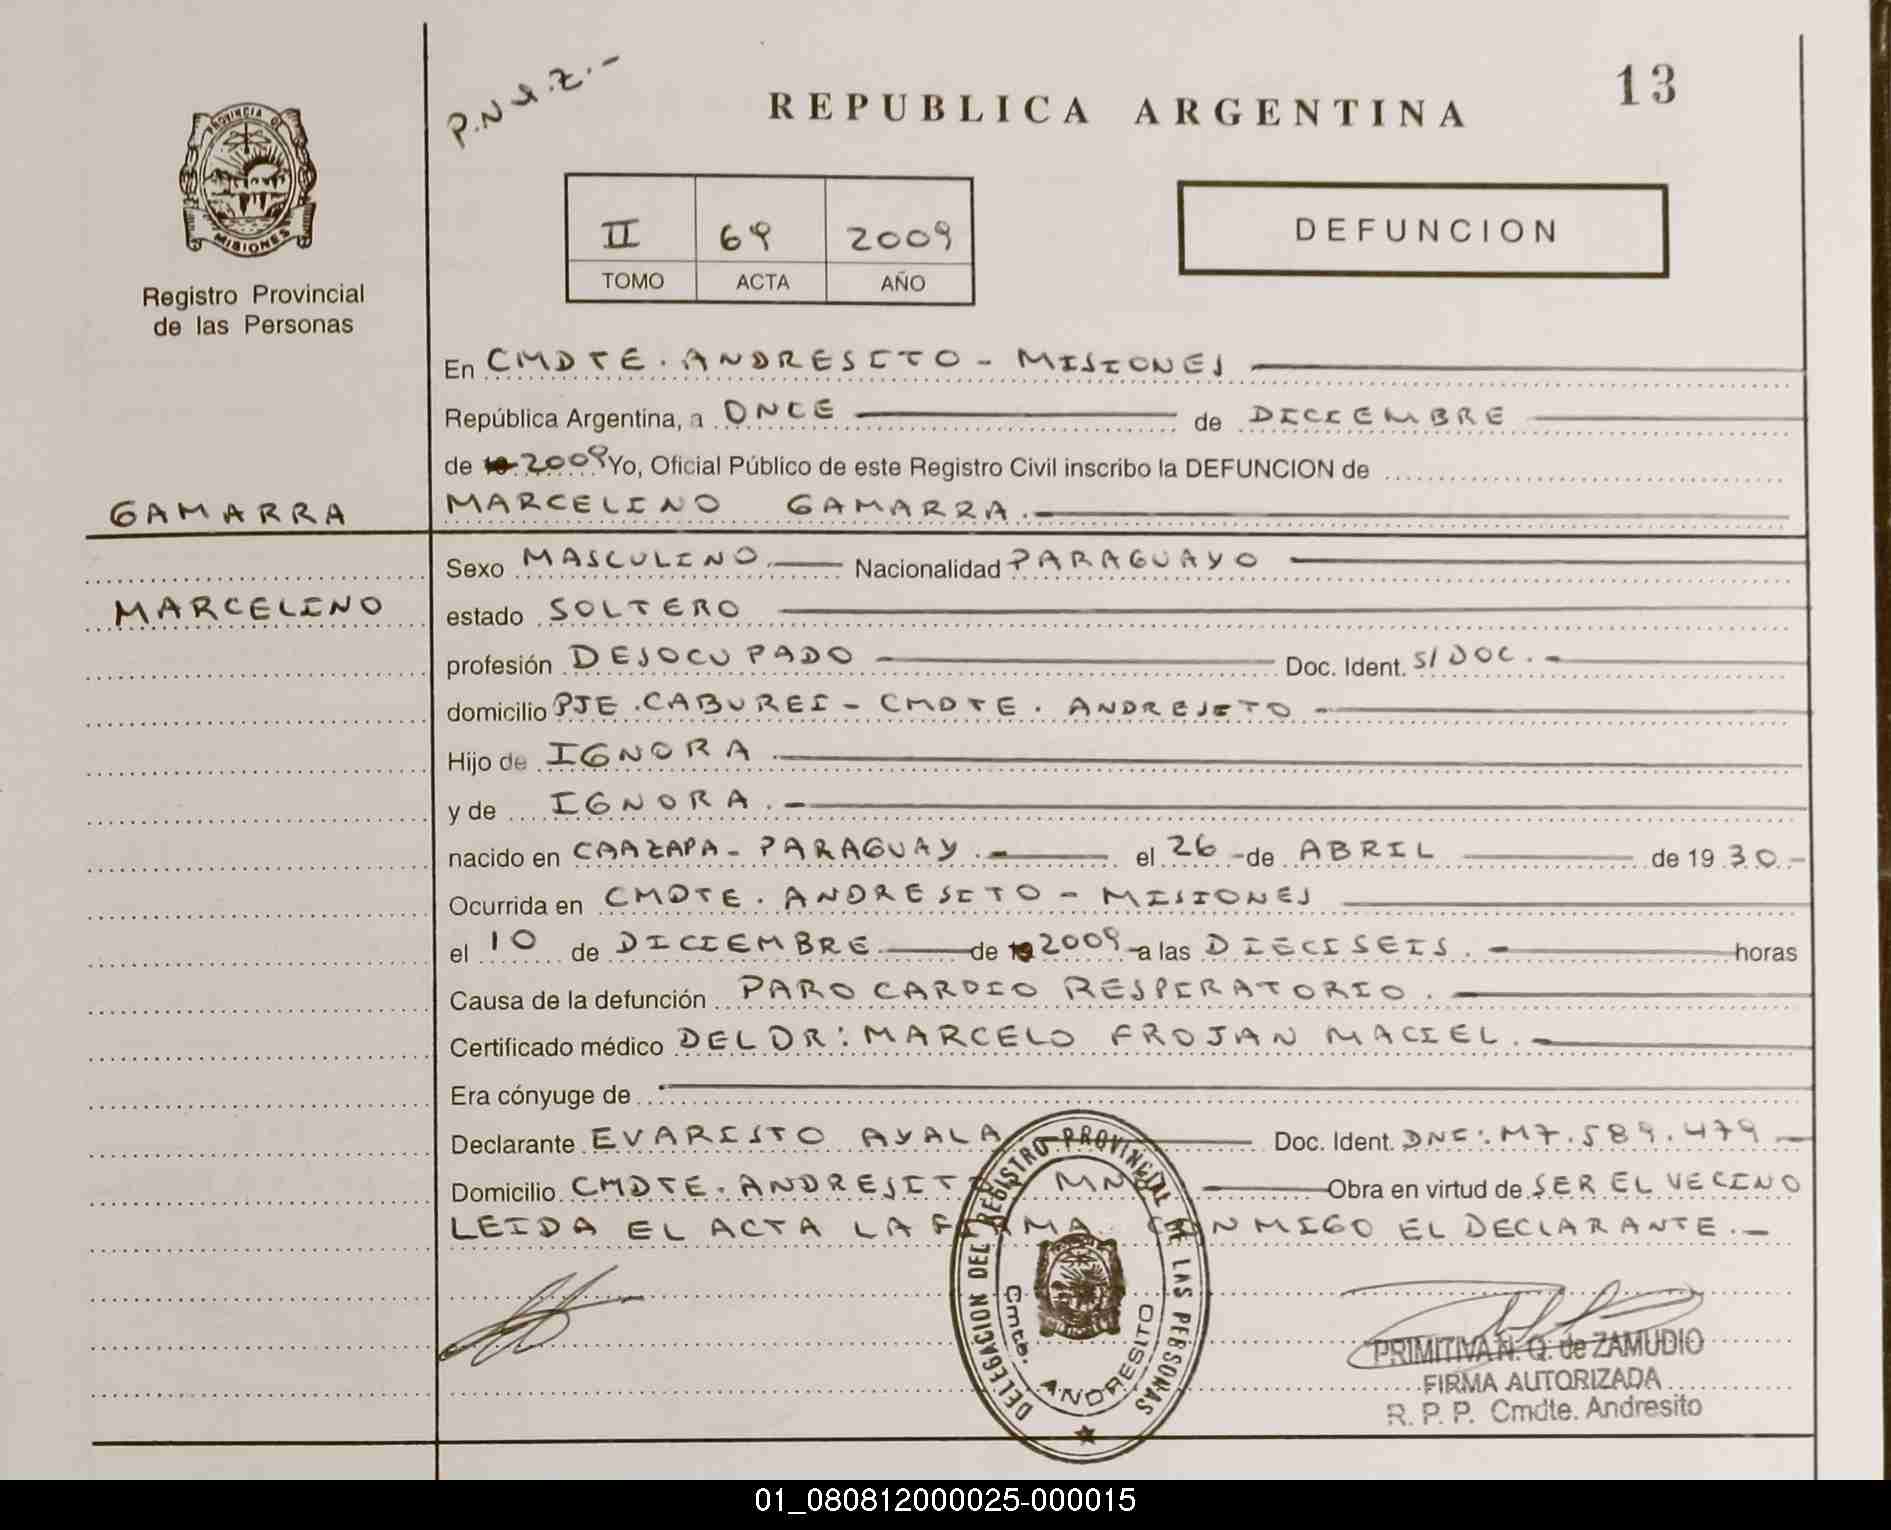 P.N.Q.Z.-
REPUBLICA ARGENTINA
13
PROVINCIA DE
MISIONES
Registro Provincial
de las Personas
II 69 2009
TOMO ACTA AÑO
DEFUNCION
En CMDTE. ANDRESITO - MISIONES
República Argentina, a ONCE de DICIEMBRE
de 2009 Yo, Oficial Público de este Registro Civil inscribo la DEFUNCION de
GAMARRA
MARCELINO GAMARRA.
MARCELINO
Sexo MASCULINO Nacionalidad PARAGUAYO
estado SOLTERO
profesión DESOCUPADO Doc. Ident. S/DOC.-
domicilio PJE. CABUREI - CMDTE. ANDRESITO
Hijo de IGNORA
y de IGNORA.-
nacido en CAAZAPA- PARAGUAY.- el 26 -de ABRIL de 19 30-
Ocurrida en CMDTE. ANDRESITO - MISIONES
el 10 de DICIEMBRE de 2009 a las DIECISEIS.- horas
Causa de la defunción PARO CARDIO RESPIRATORIO.
Certificado médico DEL DR: MARCELO FROJAN MACIEL.-
Era cónyuge de
Declarante EVARISTO AYALA Doc. Ident. DNI: M7.589.479-
Domicilio CMDTE. ANDRESITO MNES Obra en virtud de SER EL VECINO
LEIDA EL ACTA LA FIRMA CONMIGO EL DECLARANTE.-
DELEGACION DEL REGISTRO PROVINCIAL DE LAS PERSONAS
Cmte. ANDRESITO
PRIMITIVA N. Q. de ZAMUDIO
FIRMA AUTORIZADA
R. P. P. Cmdte. Andresito
01_080812000025-000015